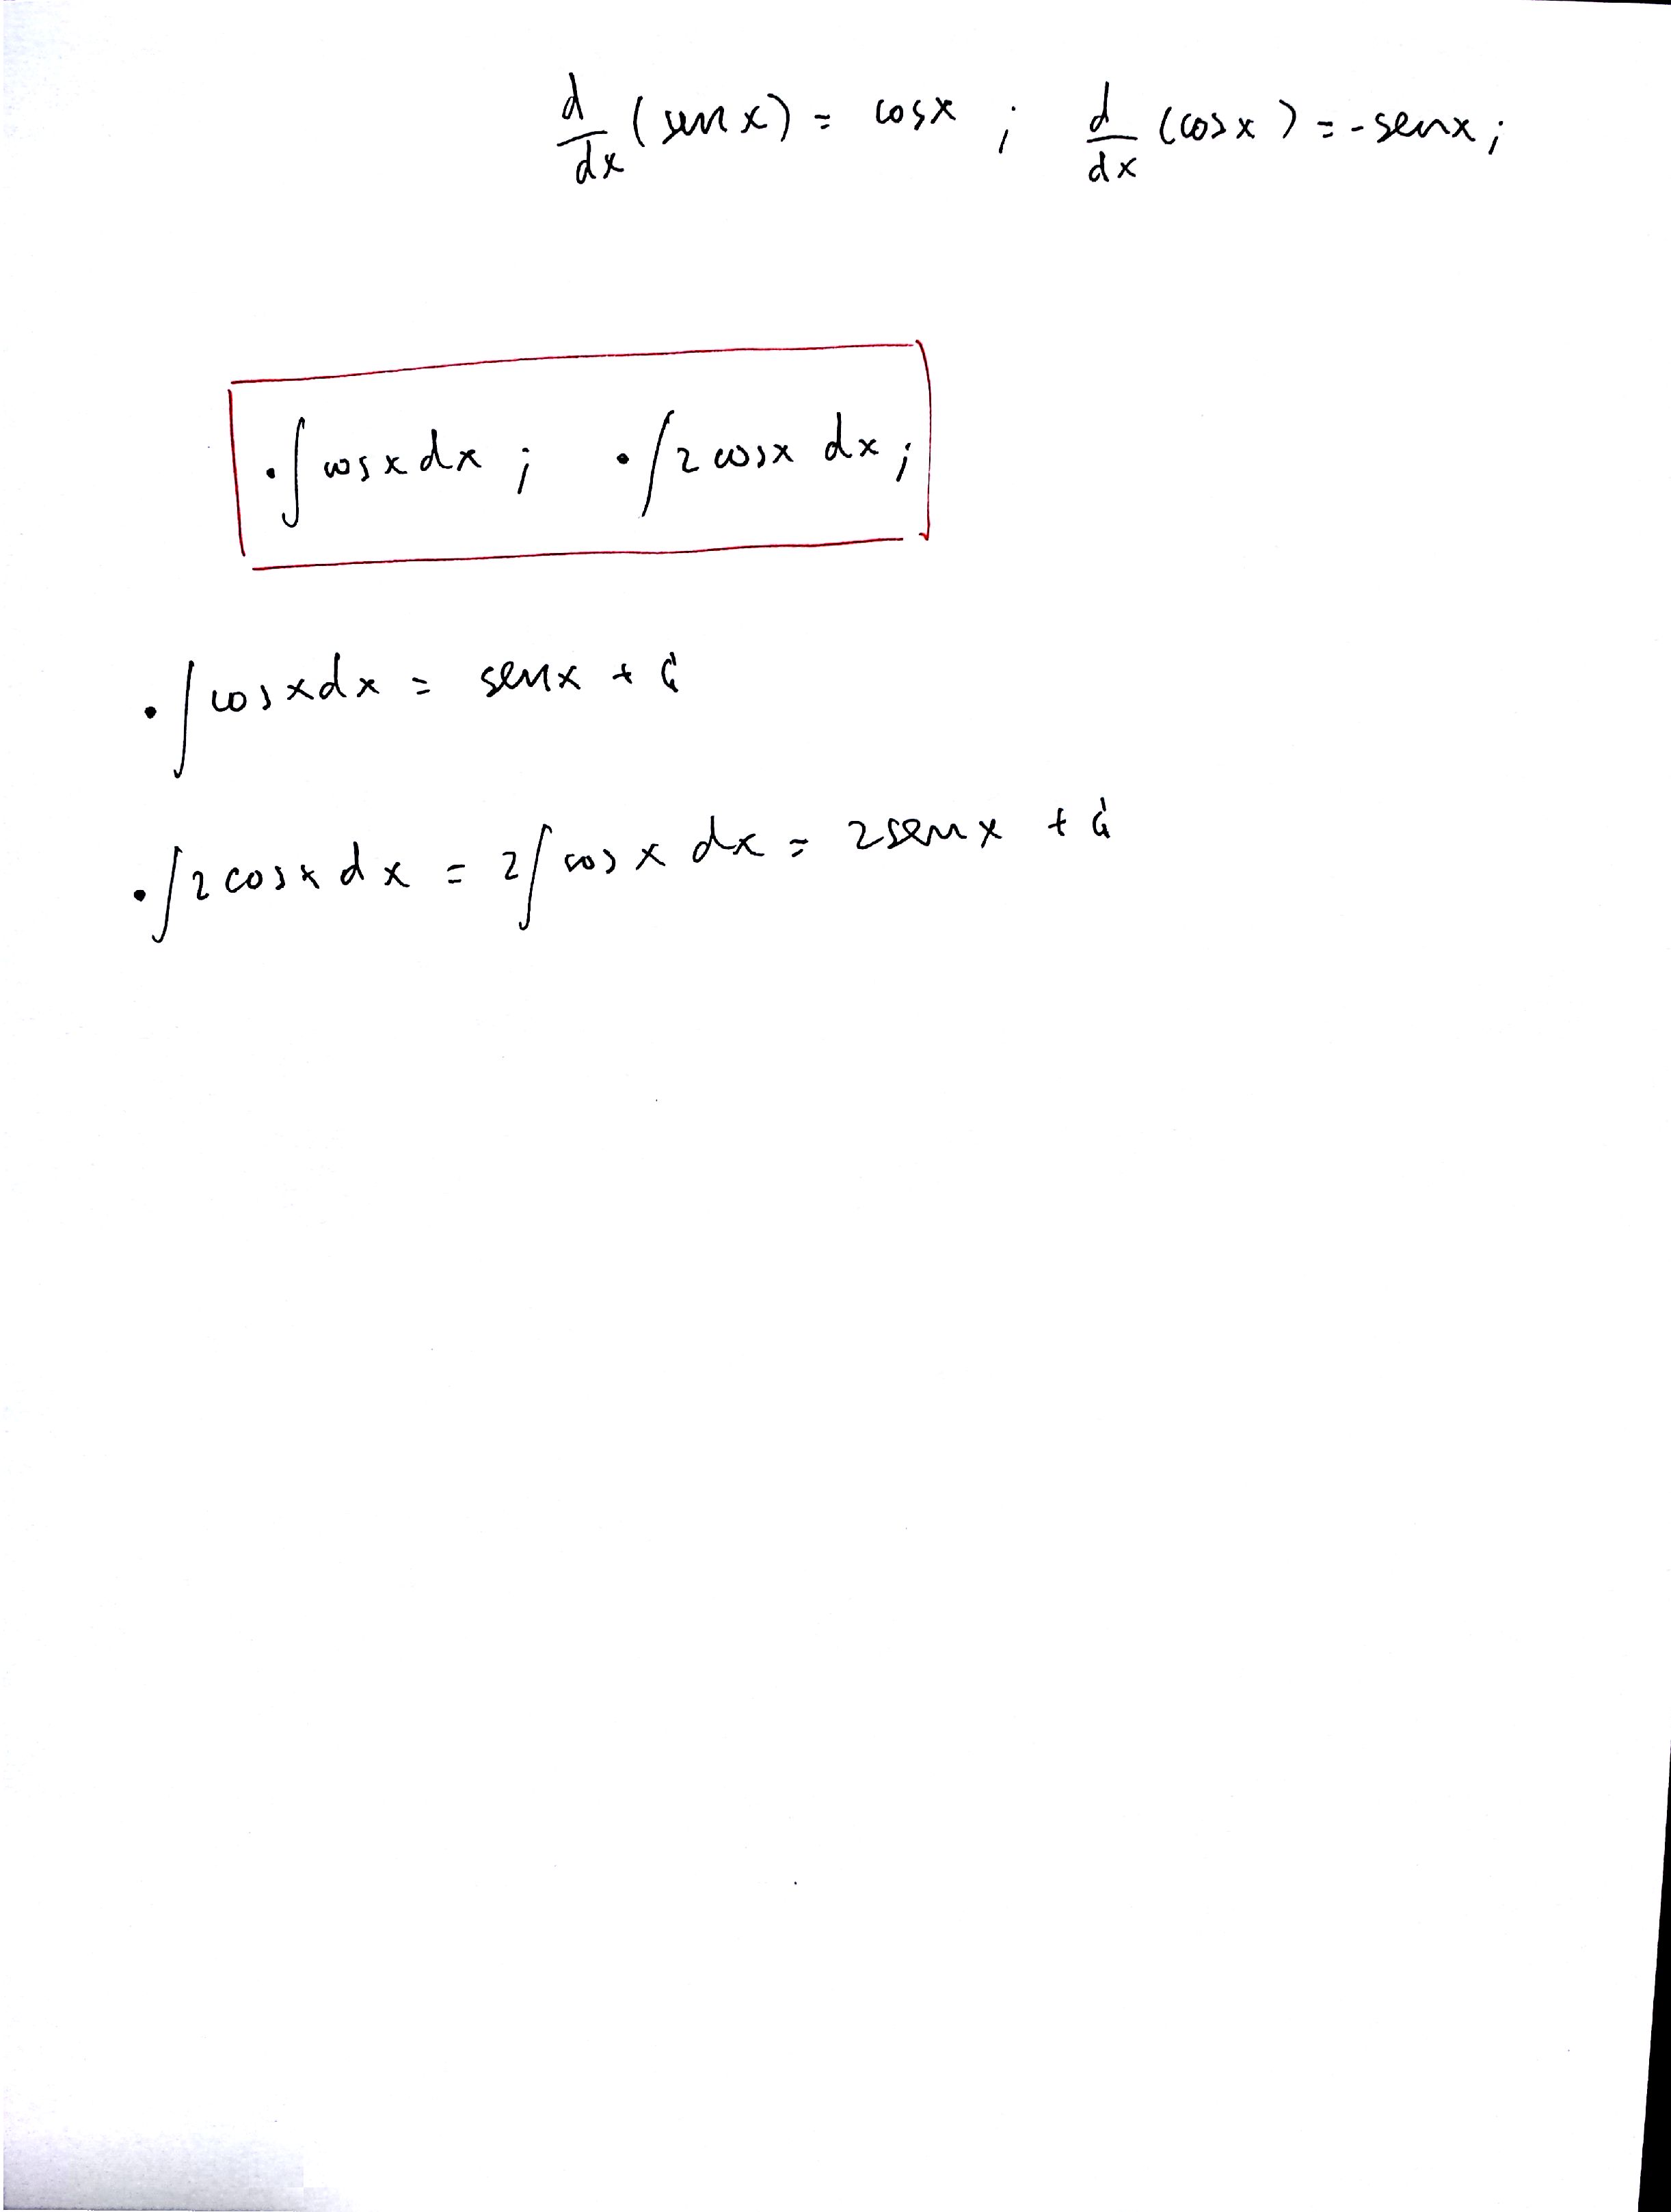 d/dx (sen x) = cos x ; d/dx (cos x) = -sen x ;
• ∫ cos x dx ; • ∫ 2 cos x dx ;
• ∫ cos x dx = sen x + C
• ∫ 2 cos x dx = 2 ∫ cos x dx = 2 sen x + C